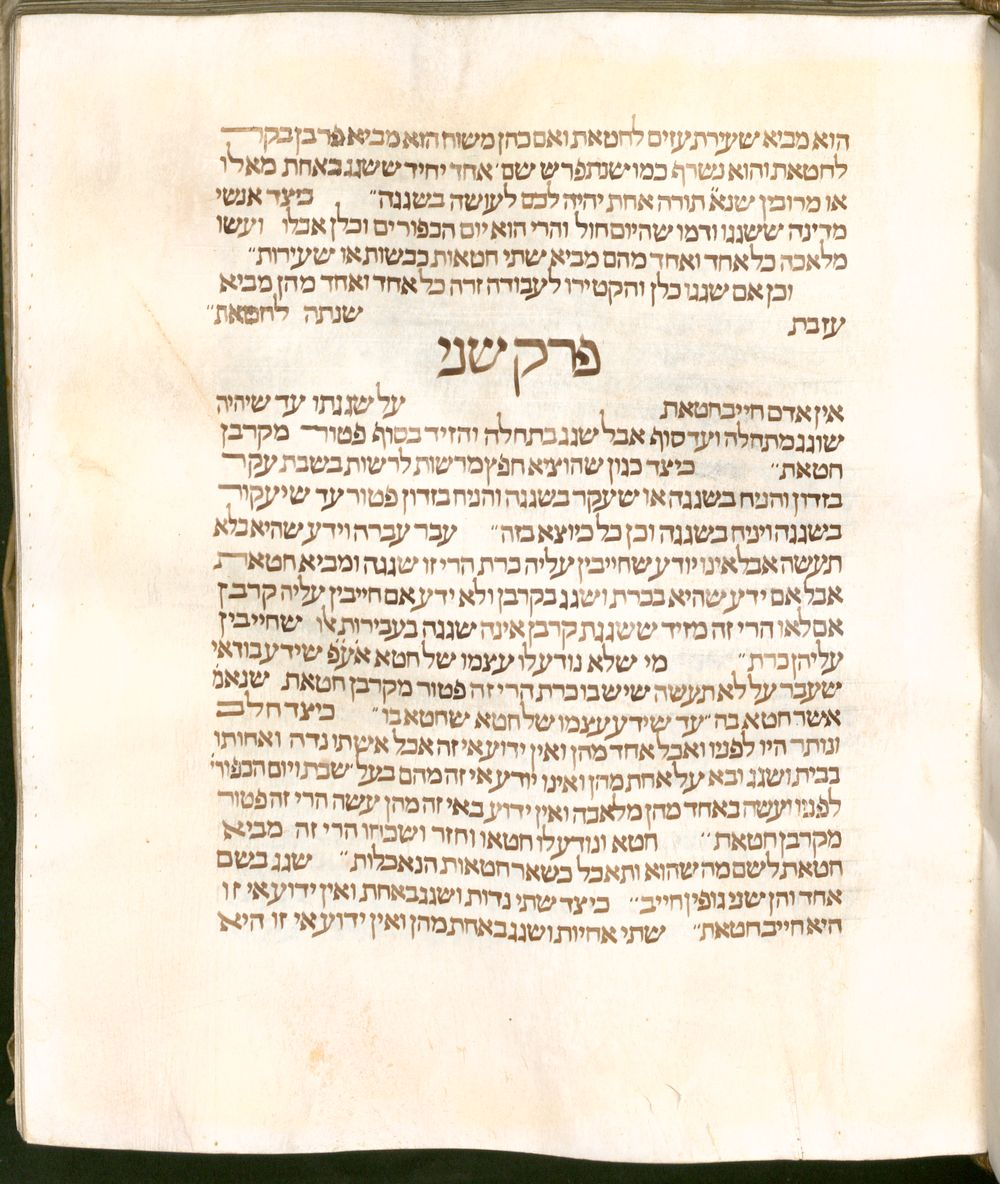 הוא מביא שעירת עזים לחטאת ואם כהן משוח הוא מביא פר בן בקר
לחטאת והוא נשרף כמו שנתפרש שם אחד יחיד ששגג באחת מאלו
או מרובין שנא׳ תורה אחת יהיה לכם לעושה בשגגה״ כיצד אנשי
מדינה ששגגו ודמו שהיום חול והרי הוא יום הכפורים וכלן אכלו ועשו
מלאכה כל אחד ואחד מהם מביא שתי חטאות כבשות או שעירות״
וכן אם שגגו כלן והקטירו לעבודה זרה כל אחד ואחד מהן מביא
עז בת שנתה לחטאת״
פרק שני
אין אדם חייב חטאת על שגגתו עד שיהיה
שוגג מתחלה ועד סוף אבל שגג בתחלה והזיד בסוף פטור מקרבן
חטאת״ כיצד כגון שהוציא חפץ מרשות לרשות בשבת עקר
בזדון והניח בשגגה או שעקר בשגגה והניח בזדון פטור עד שיעקור
בשגגה ויניח בשגגה וכן כל כיוצא בזה״ עבר עברה וידע שהיא בלא
תעשה אבל אינו יודע שחייבין עליה כרת הרי זו שגגה ומביא חטאת
אבל אם ידע שהיא בכרת ושגג בקרבן ולא ידע אם חייבין עליה קרבן
אם לאו הרי זה מזיד ששגגת קרבן אינה שגגה בעבירות אלו שחייבין
עליהן כרת״ מי שלא נודע לו עצמו של חטא אע״פ שידע בודאי
שעבר על לא תעשה שיש בו כרת הרי זה פטור מקרבן חטאת שנאמ׳
אשר חטא בה״ עד שידע עצמו של חטא שחטא בו״ כיצד חלב
ונותר היו לפניו ואכל אחד מהן ואין ידוע אי זה אכל אשתו נדה ואחותו
בבית ושגג ובא על אחת מהן ואינו יודע אי זה מהם בעל שבת ויום הכפור׳
לפניו ועשה באחד מהן מלאכה ואין ידוע באי זה מהן עשה הרי זה פטור
מקרבן חטאת״ חטא ונודע לו חטאו וחזר ושכחו הרי זה מביא
חטאת לשם מה שהוא ותאכל כשאר חטאות הנאכלות״ שגג בשם
אחד והן שני גופין חייב״ כיצד שתי נדות ושגג באחת ואין ידוע אי זו
היא חייב חטאת״ שתי אחיות ושגג באחת מהן ואין ידוע אי זו היא